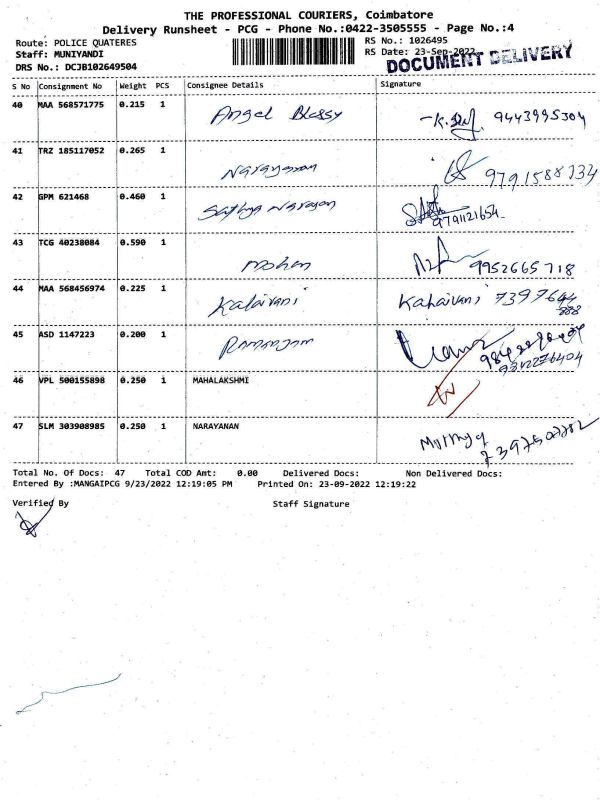 THE PROFESSIONAL COURIERS, Coimbatore
Delivery Runsheet - PCG - Phone No.:0422-3505555 - Page No.:4
Route: POLICE QUATERES RS No.: 1026495
Staff: MUNIYANDI RS Date: 23-Sep-2022
DRS No.: DCJB102649504 DOCUMENT DELIVERY
S No Consignment No Weight PCS Consignee Details Signature
40 MAA 568571775 0.215 1 Angel Blessy 9443995304
41 TRZ 185117052 0.265 1 Narayanan 9791588734
42 GPM 621468 0.460 1 Sathya Narayan 9791121654
43 TCG 40238084 0.590 1 Mohan 9952665718
44 MAA 568456974 0.225 1 Kalaivani Kalaivani 7397644
888
45 ASD 1147223 0.200 1
9312276404
46 VPL 500155898 0.250 1 MAHALAKSHMI
47 SLM 303908985 0.250 1 NARAYANAN
Total No. Of Docs: 47 Total COD Amt: 0.00 Delivered Docs: Non Delivered Docs:
Entered By :MANGAIPCG 9/23/2022 12:19:05 PM Printed On: 23-09-2022 12:19:22
Verified By Staff Signature